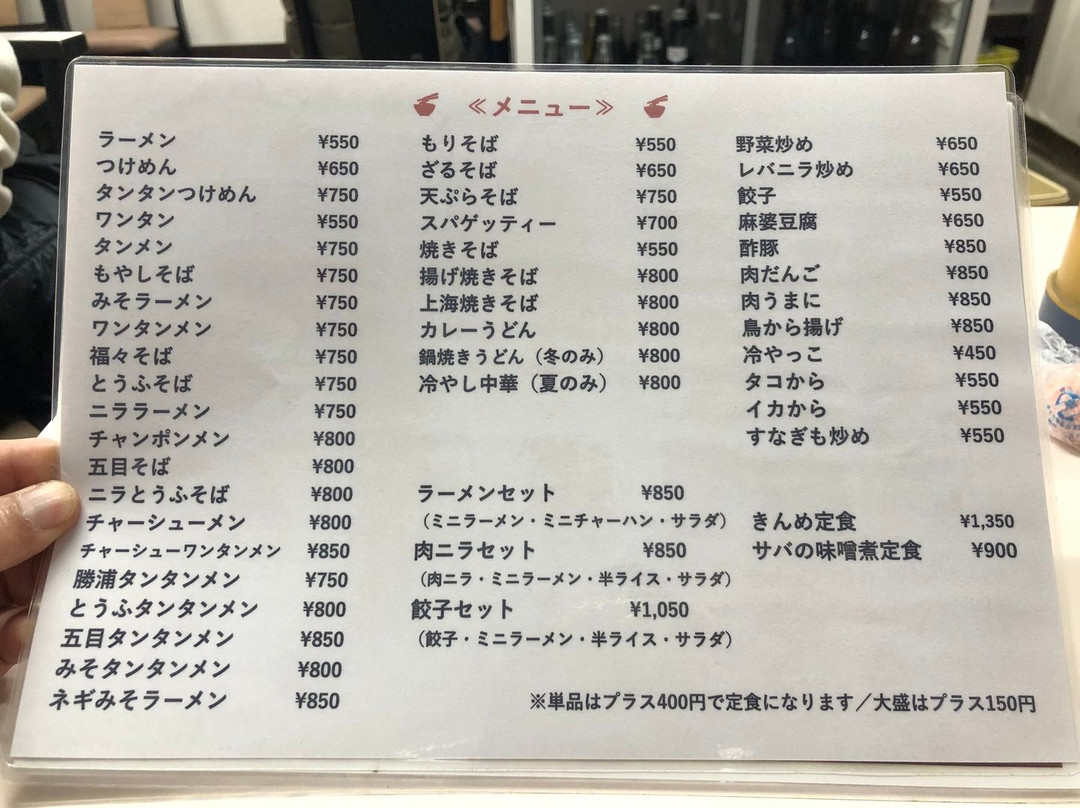 ≪メニュー≫
ラーメン ¥550
つけめん ¥650
タンタンつけめん ¥750
ワンタン ¥550
タンメン ¥750
もやしそば ¥750
みそラーメン ¥750
ワンタンメン ¥750
福々そば ¥750
とうふそば ¥750
ニララーメン ¥750
チャンポンメン ¥800
五目そば ¥800
ニラとうふそば ¥800
チャーシューメン ¥800
チャーシューワンタンメン ¥850
勝浦タンタンメン ¥750
とうふタンタンメン ¥800
五目タンタンメン ¥850
みそタンタンメン ¥800
ネギみそラーメン ¥850
もりそば ¥550
ざるそば ¥650
天ぷらそば ¥750
スパゲッティー ¥700
焼きそば ¥550
揚げ焼きそば ¥800
上海焼きそば ¥800
カレーうどん ¥800
鍋焼きうどん（冬のみ） ¥800
冷やし中華（夏のみ） ¥800
ラーメンセット ¥850
（ミニラーメン・ミニチャーハン・サラダ）
肉ニラセット ¥850
（肉ニラ・ミニラーメン・半ライス・サラダ）
餃子セット ¥1,050
（餃子・ミニラーメン・半ライス・サラダ）
野菜炒め ¥650
レバニラ炒め ¥650
餃子 ¥550
麻婆豆腐 ¥650
酢豚 ¥850
肉だんご ¥850
肉うまに ¥850
鳥から揚げ ¥850
冷やっこ ¥450
タコから ¥550
イカから ¥550
すなぎも炒め ¥550
きんめ定食 ¥1,350
サバの味噌煮定食 ¥900
※単品はプラス400円で定食になります／大盛はプラス150円